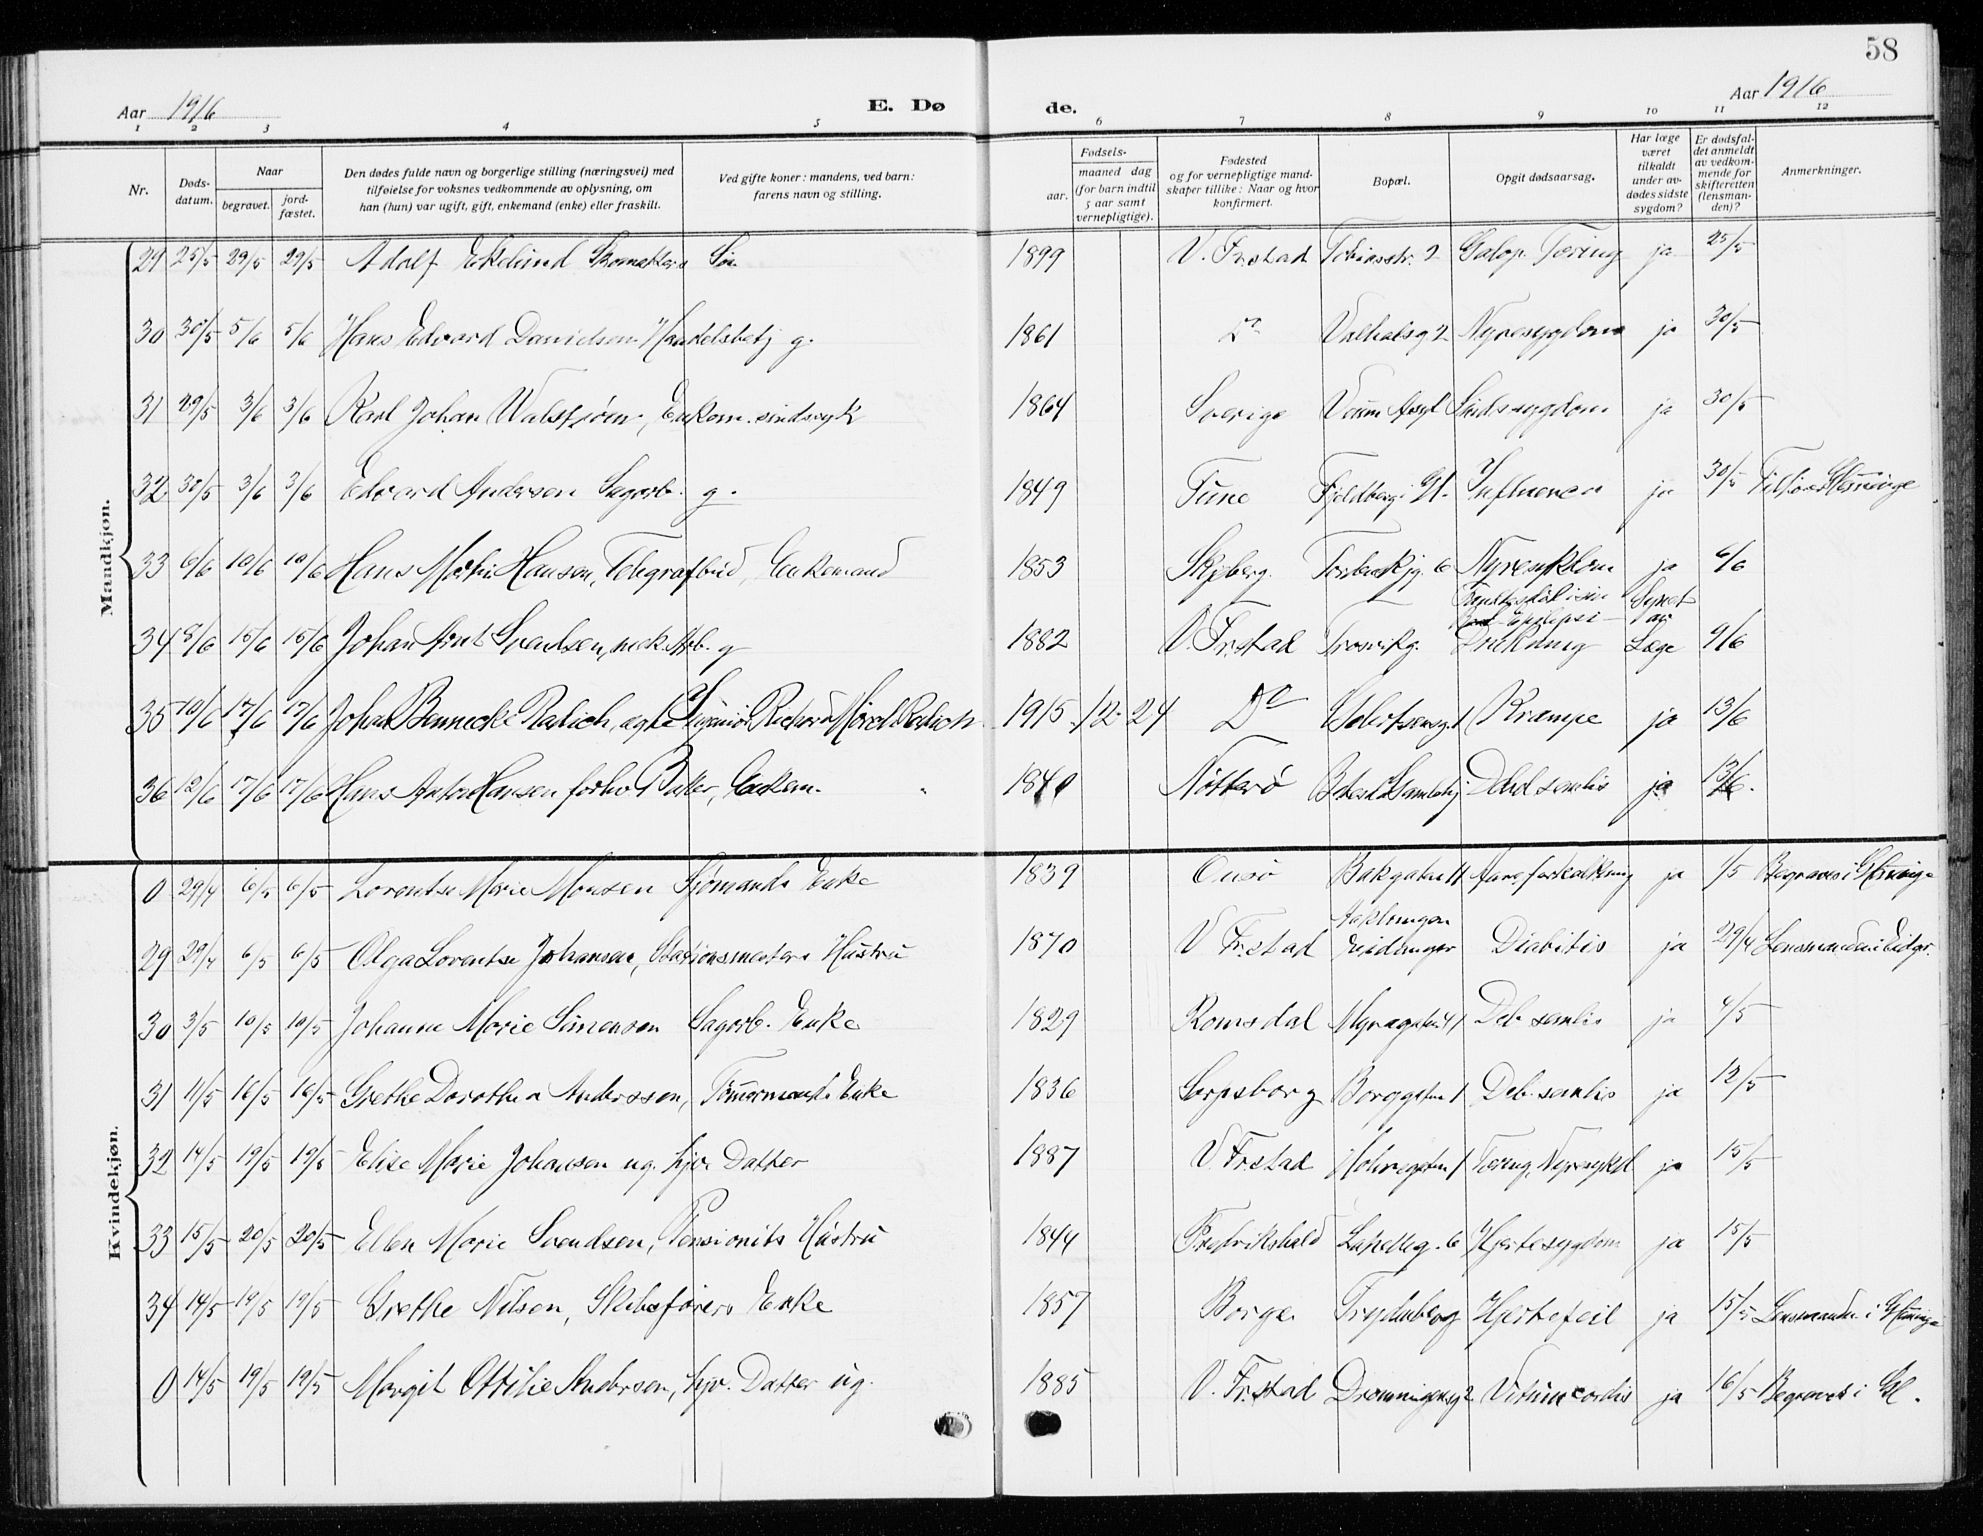 58
Aar 1916 E. Dø de. Aar 1916
1 2 3 4 5 6 7 8 9 10 11 12
Nr.
Døds-
datum.
Naar
begravet.
jord-
fæstet.
Den dødes fulde navn og borgerlige stilling (næringsvei) med
tilføielse for voksnes vedkommende av oplysning, om
han (hun) var ugift, gift, enkemand (enke) eller fraskilt.
Ved gifte koner: mandens, ved barn:
farens navn og stilling.
Fødsels-
aar.
maaned dag
(for barn indtil
5 aar samt
vernepligtige).
Fødested
og for vernepligtige mand-
skaper tillike: Naar og hvor
konfirmert.
Bopæl.
Opgit dødsaarsag.
Har læge
været
tilkaldt
under av-
dødes sidste
sygdom?
Er dødsfal-
det anmeldt
av vedkom-
mende for
skifteretten
(lensman-
den)?
Anmerkninger.
Mandkjøn.
29 25/5 29/5 29/5 Adolf Ekelund Skomakers Søn 1899 V. Fr.stad Tobiasstr. 2 Galop. Tæring ja 25/5
30 30/5 5/6 5/6 Hans Edvard Danielsen Handelsbetj g. 1861 Do Valhalsg 2 Nyresygdom ja 30/5
31 29/5 3/6 3/6 Karl Johan Walstrøm, Enkem. sindssyk 1864 Sverige Veum Asyl Sindssygdom ja 30/5
32 30/5 3/6 3/6 Edvard Andersen Sagarb. g. 1849 Tune Fjeldberg i Gl. Influenca ja 30/5 Glemminge
33 6/6 10/6 10/6 Hans Martin Hansen, Telegrafbud, Enkemand 1853 Skjeberg Tordenskjg. 6 Nyresykdom ja 6/6
34 8/6 15/6 15/6 Johan Arnt Svendsen, mek. Arb. g 1882 V. Fr.stad Trosvikg. Epilepsi Drukning Synet av Læge 9/6
35 10/6 17/6 17/6 Johan Bennecke Radich, ægte Ingeniør Richard Mörch Radich 1915 12 24 Do Krampe ja 13/6
36 12/6 17/6 17/6 Hans Anton Hansen forhv Baker, Enkem. " 1840 Nötterö Debel senilis ja 13/6.
Kvindekjøn.
0 29/4 6/5 6/5 Lorentse Marie Monsen Sjömands Enke 1839 Onsö Bakgaten 11 Aareforkalkning ja 1/5 Begraves i Glemminge
29 29/4 6/5 6/5 Olga Lorentse Johansen, Stationsmesters Hustru 1870 V Fr.stad Askbungen Eidanger Diabitis ja 29/4 Lensmanden i Eidgr.
30 3/5 10/5 10/5 Johanne Marie Simensen Sagarb. Enke 1829 Romsdal Myragaten 41 Deb senilis ja 4/5
31 11/5 16/5 16/5 Grethe Dorothea Anderssen, Tömermands Enke 1836 Sarpsborg Borggaten 1 Deb. senilis ja 12/5
32 14/5 19/5 19/5 Elise Marie Johansen ug. hjv. Datter 1887 V Fr.stad Holmegaten 1 Tæring, Nyresykd ja 15/5
33 15/5 20/5 20/5 Ellen Marie Svendsen, Pensionists Hustru 1844 Fredrikshald Kapellg. 6 Hjertesygdom ja 15/5
34 14/5 19/5 19/5 Grethe Nilsen, Skibsförers Enke 1857 Borge Frydenberg Hjertefeil ja 15/5 Lensmanden i Glemminge
0 14/5 19/5 19/5 Margit Ottilie Andersen, hjv. Datter ug. 1885 V. Fr.stad Dronningensg 2 Vitium cordis ja 16/5 Begravet i Gl.